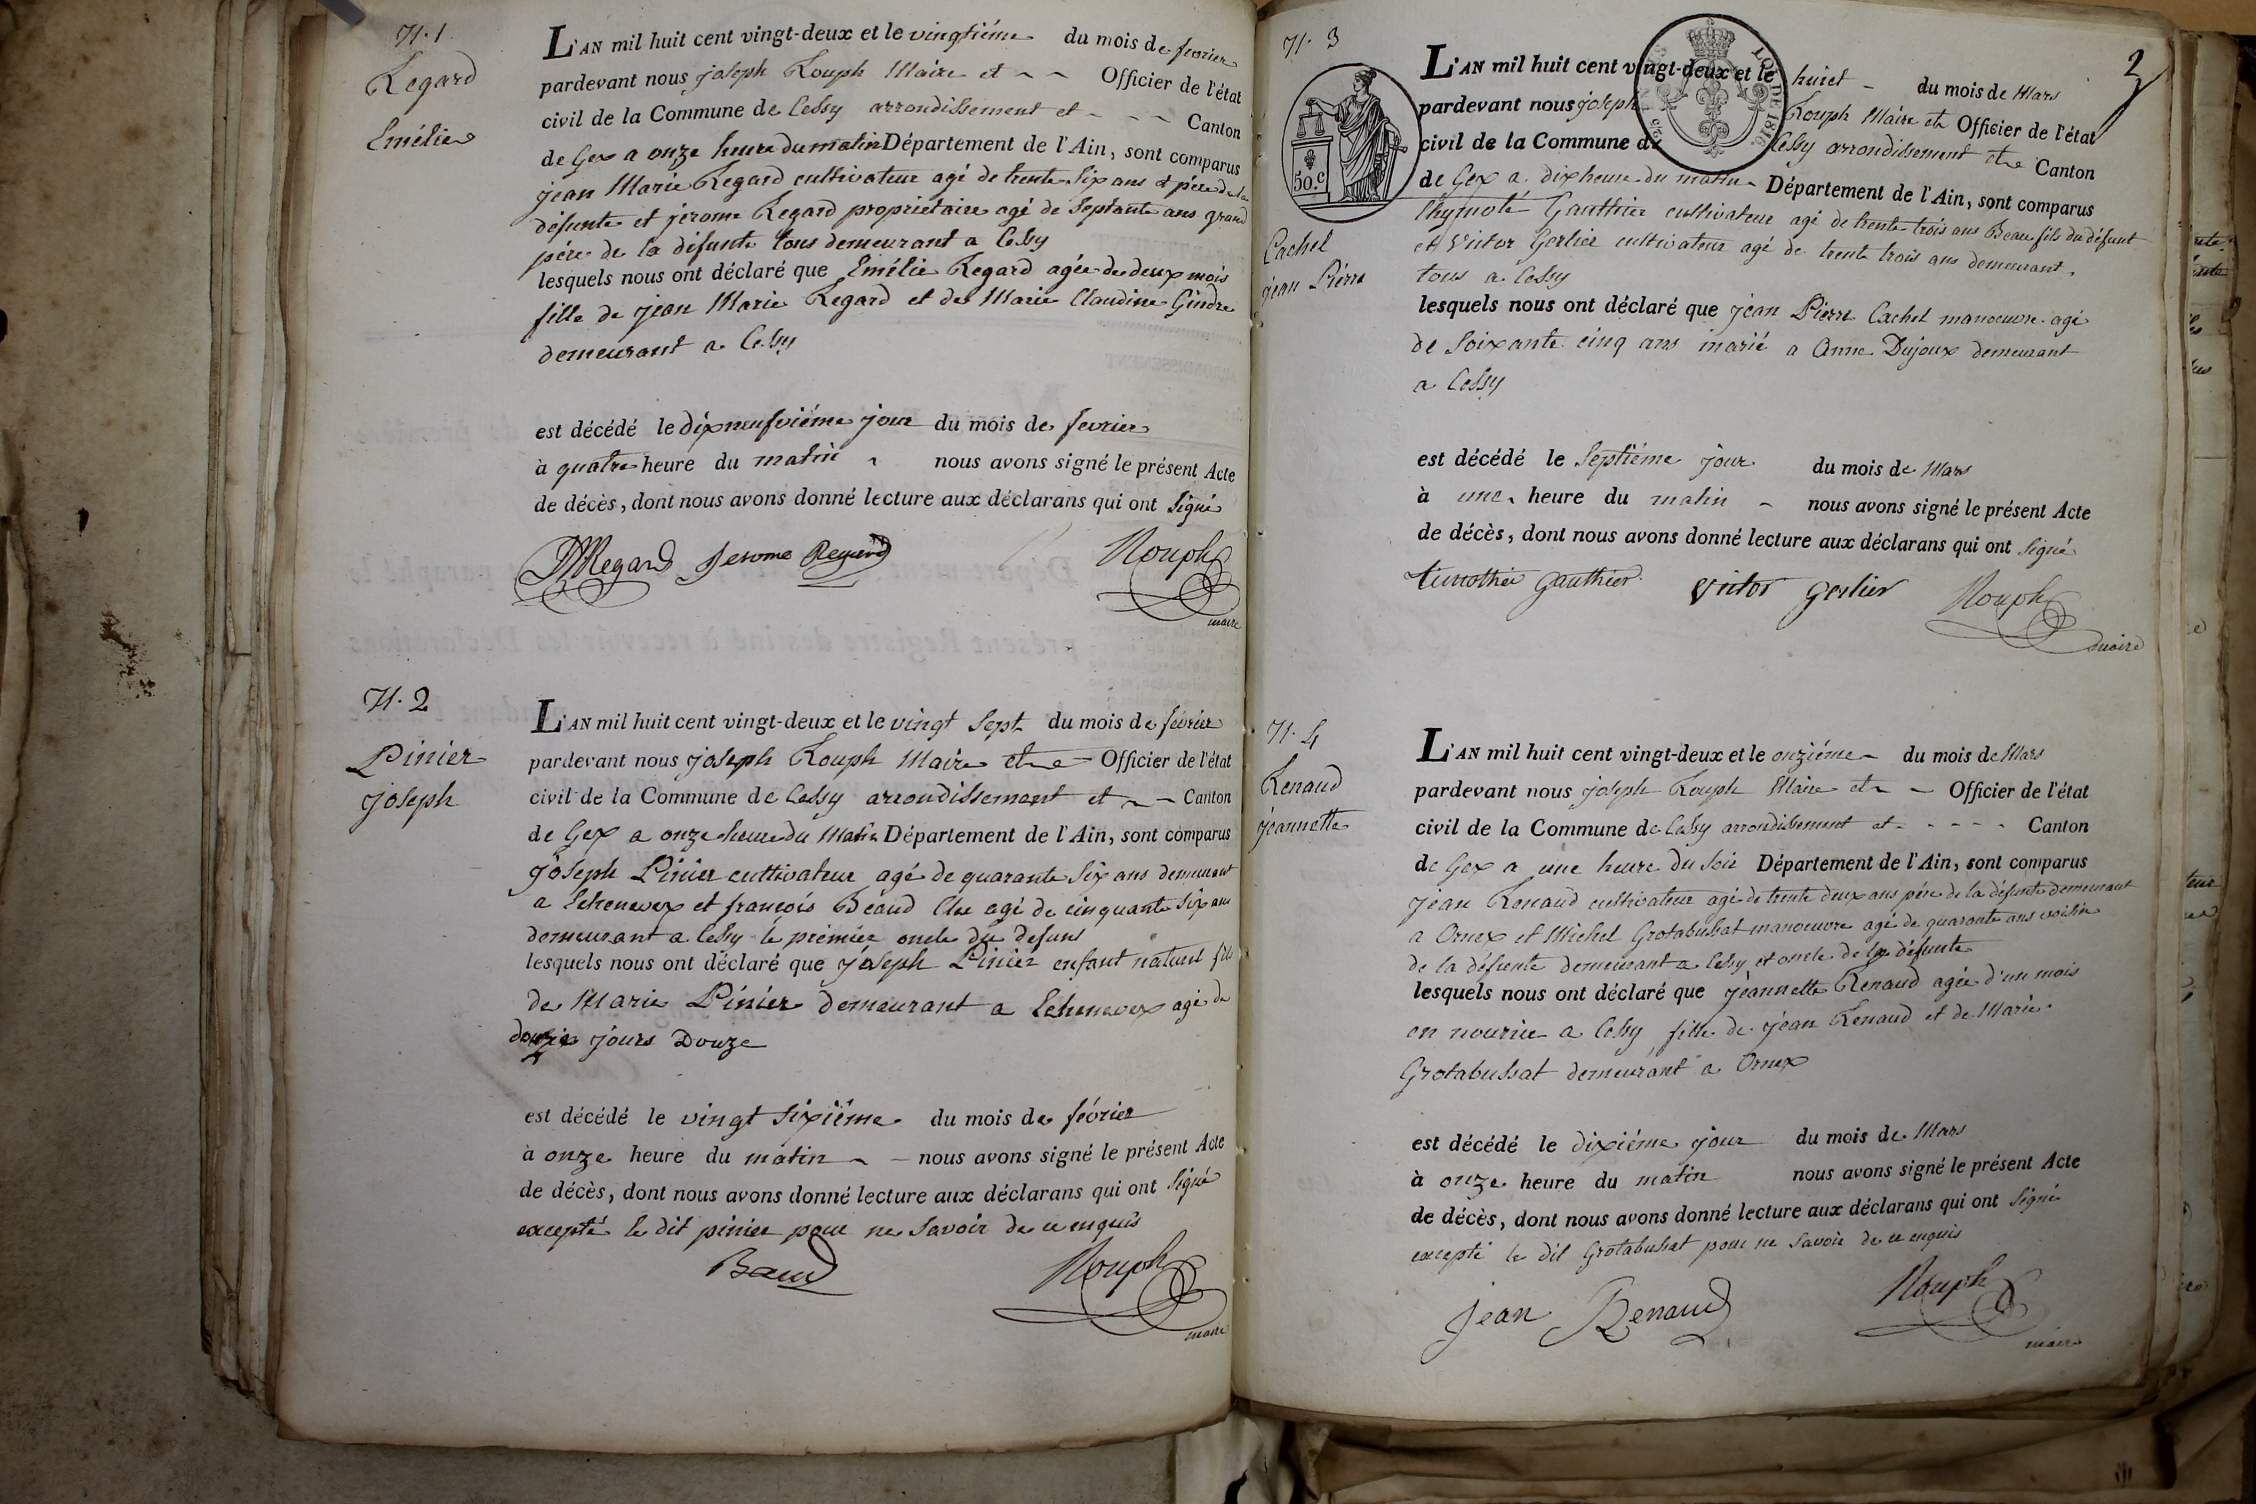 N. 1
Regard
Emélie
L'AN mil huit cent vingt-deux et le vingtiéme du mois de fevrier
pardevant nous joseph Rouph Maire et Officier de l'état
civil de la Commune de Cessy arrondissement et Canton
de Gex a onze heure du matin Département de l'Ain, sont comparus
jean Marie Regard cultivateur agé de trente six ans et pére de la
défunte et jerome Regard proprietaire agé de septante ans grand
pére de la défunte tous demeurant a Cessy
lesquels nous ont déclaré que Emélie Regard agée de deux mois
fille de jean Marie Regard et de Marie Claudine Gindre
demeurant a Cessy
est décédé le dixneufviéme jour du mois de fevrier
à quatre heure du matin nous avons signé le présent Acte
de décès, dont nous avons donné lecture aux déclarans qui ont signé
JMRegard Jerome Regard Rouph
maire
N. 2
Pinier
joseph
L'AN mil huit cent vingt-deux et le vingt sept du mois de février
pardevant nous joseph Rouph Maire et Officier de l'état
civil de la Commune de Cessy arrondissement et Canton
de Gex a onze heure du matin Département de l'Ain, sont comparus
joseph Pinier cultivateur agé de quarante six ans demeurant
a Echenevex et françois Béaud agé de cinquante six ans
demeurant a Cessy le premier oncle du defunt
lesquels nous ont déclaré que joseph Pinier enfant naturel fils
de Marie Pinier demeurant a Echenevex agé de
jours Douze
est décédé le vingt sixiéme du mois de février
à onze heure du matin nous avons signé le présent Acte
de décès, dont nous avons donné lecture aux déclarans qui ont signé
excepté le dit pinier pour ne savoir de ce enquis
Baud Rouph
maire
N. 3
2
50.c
LOI DE 1816
Cachet
jean Piérre
L'AN mil huit cent vingt-deux et le huict du mois de Mars
pardevant nous joseph Rouph Maire et Officier de l'état
civil de la Commune de Cessy arrondissement et Canton
de Gex a dix heure du matin Département de l'Ain, sont comparus
thymoté Gauthier cultivateur agé de trente trois ans Beau fils du défunt
et Victor Gerlier cultivateur agé de trente trois ans demeurant
tous a Cessy
lesquels nous ont déclaré que jean Pierre Cachet manoeuvre agé
de soixante cinq ans marié a Anne Dujoux demeurant
a Cessy
est décédé le septiéme jour du mois de Mars
à une heure du matin nous avons signé le présent Acte
de décès, dont nous avons donné lecture aux déclarans qui ont signé
timothée gauthier victor gerlier Rouph
maire
N. 4
Renaud
jeannette
L'AN mil huit cent vingt-deux et le onziéme du mois de Mars
pardevant nous joseph Rouph Maire et Officier de l'état
civil de la Commune de Cessy arrondissement et Canton
de Gex a une heure du soir Département de l'Ain, sont comparus
jean Renaud cultivateur agé de trente deux ans pére de la défunte demeurant
a Ornex et Michel Grotabussat manoeuvre agé de quarante ans voisin
de la défunte demeurant a Cessy et oncle de la défunte
lesquels nous ont déclaré que jéannette Renaud agée d'un mois
en nourice a Cessy fille de jean Renaud et de Marie
Grotabussat demeurant a Ornex
est décédé le dixiéme jour du mois de Mars
à onze heure du matin nous avons signé le présent Acte
de décès, dont nous avons donné lecture aux déclarans qui ont signé
excepté le dit Grotabussat pour ne savoir de ce enquis
jean Renaud Rouph
maire